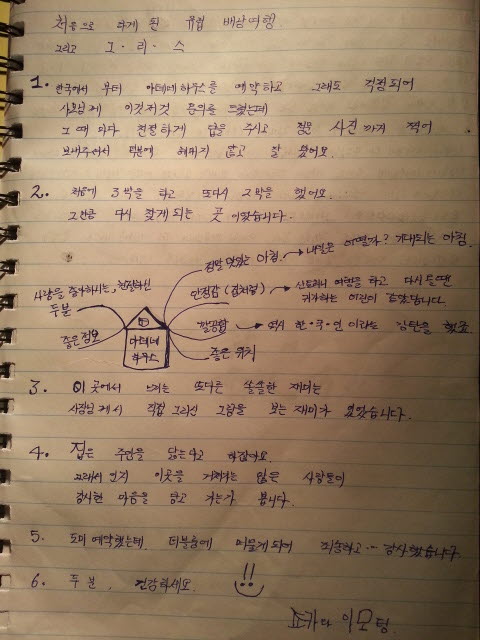 처음으로 하게 된 유럽 배낭여행
그리고 그·리·스
1. 한국에서 부터 아테네 하우스를 예약하고 그래도 걱정되어
사모님께 이것저것 문의를 드렸는데
그 때 마다 친절하게 답을 주시고 정문 사진까지 찍어
보내주셔서 덕분에 헤매지 않고 잘 왔어요.
2. 처음에 3박을 하고 또다시 2박을 했어요..
그만큼 다시 찾게 되는 곳 이었습니다.
정말 맛있는 아침. → 내일은 어떨까? 기대되는 아침.
사랑을 증가하시는, 친절하신
두분
안정감 (집처럼) → 산토리니 여행을 하고 다시 올 땐
귀가하는 기분이 들었답니다.
좋은 정보
아테네
하우스
깔끔함 → 역시 한·국·인 이라는 감탄을 했죠
좋은 위치
3. 이 곳에서 느끼는 또다른 쏠쏠한 재미는
사장님께서 직접 그리신 그림을 보는 재미가 있었습니다.
4. 집은 주인을 닮는다고 하잖아요.
그래서 인지 이곳을 거쳐가는 많은 사람들이
감사한 마음을 담고 가는가 봅니다.
5. 도미 예약했는데 더블룸에 머물게 되어 죄송하고… 감사했습니다.
6. 두 분, 건강하세요. !!